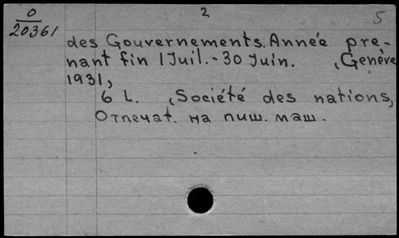 0 2 5
20361
des Gouvernements. Année pre-
nant fin 1 Juil.-30 Juin. , Genève
1931,
6 L. , Société des nations,
Отпечат. на пиш. маш.